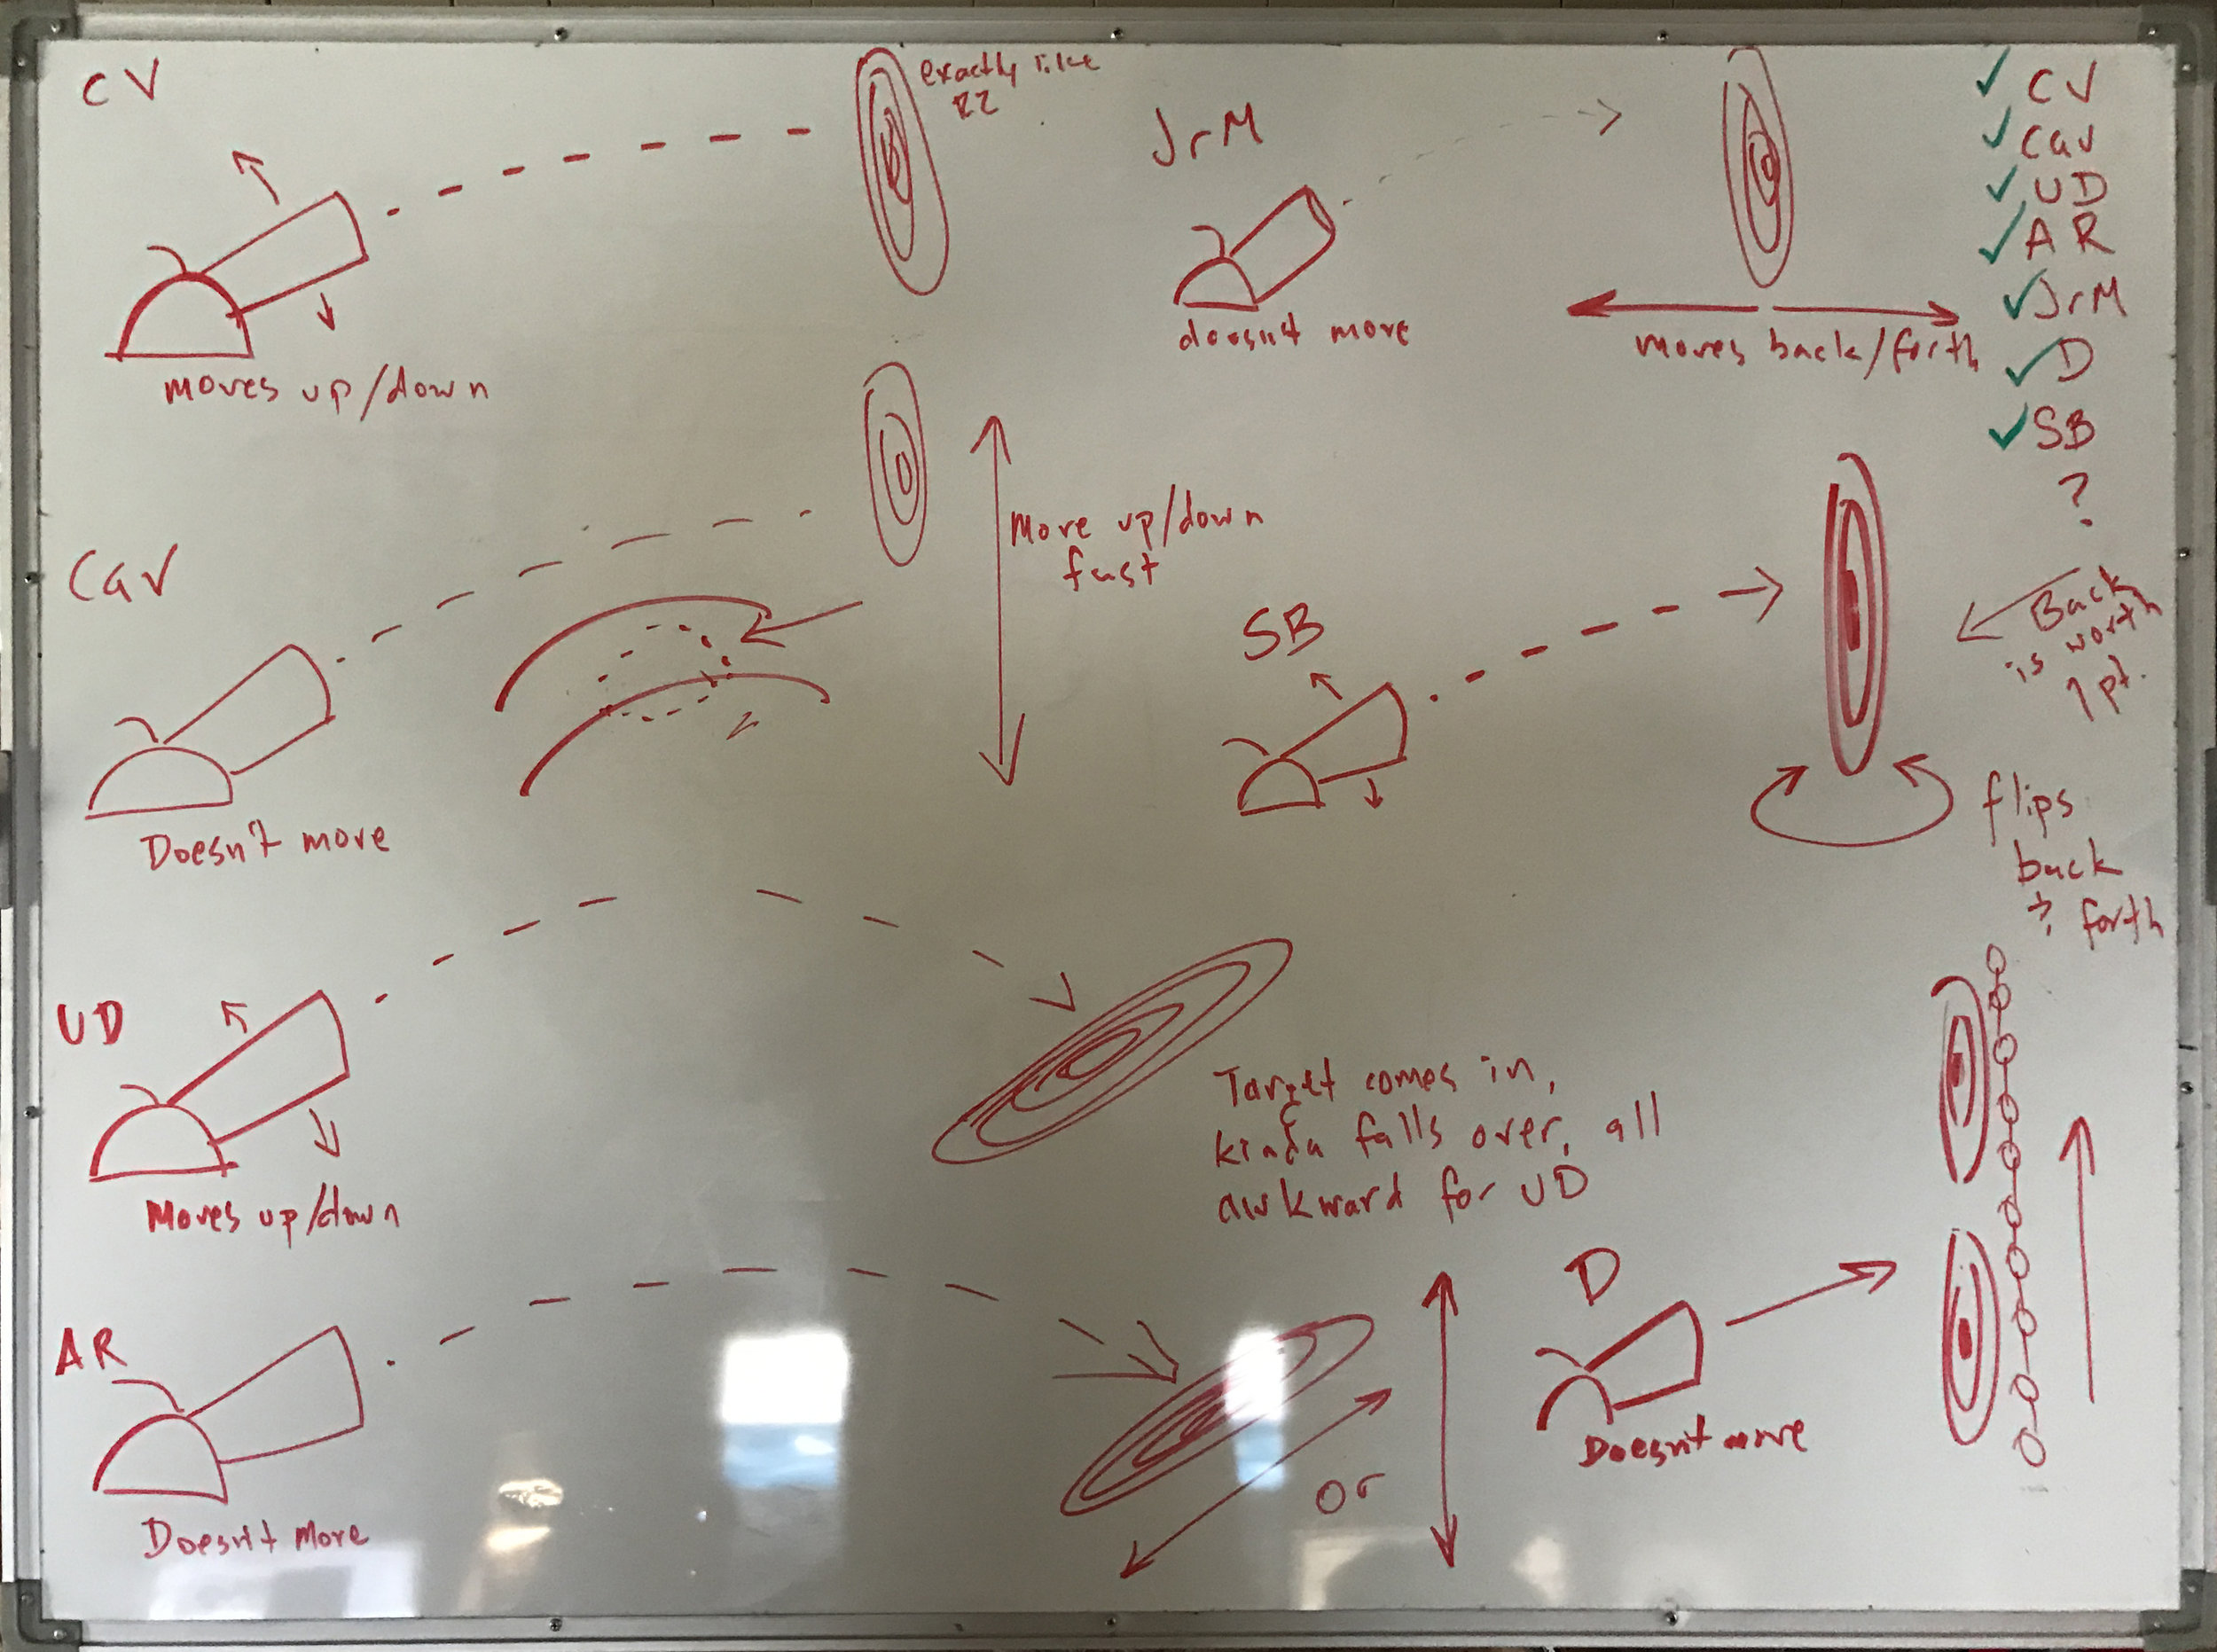 CV
exactly like
RZ
moves up/down
JrM
doesn't move
moves back/forth
CV
Cav
UD
AR
JrM
D
SB
?
Cav
Move up/down
fast
Doesn't move
SB
Back
is worth
1 pt.
flips
back
& forth
UD
Moves up/down
Target comes in,
kinda falls over, all
awkward for UD
AR
Doesn't Move
or
D
Doesn't move